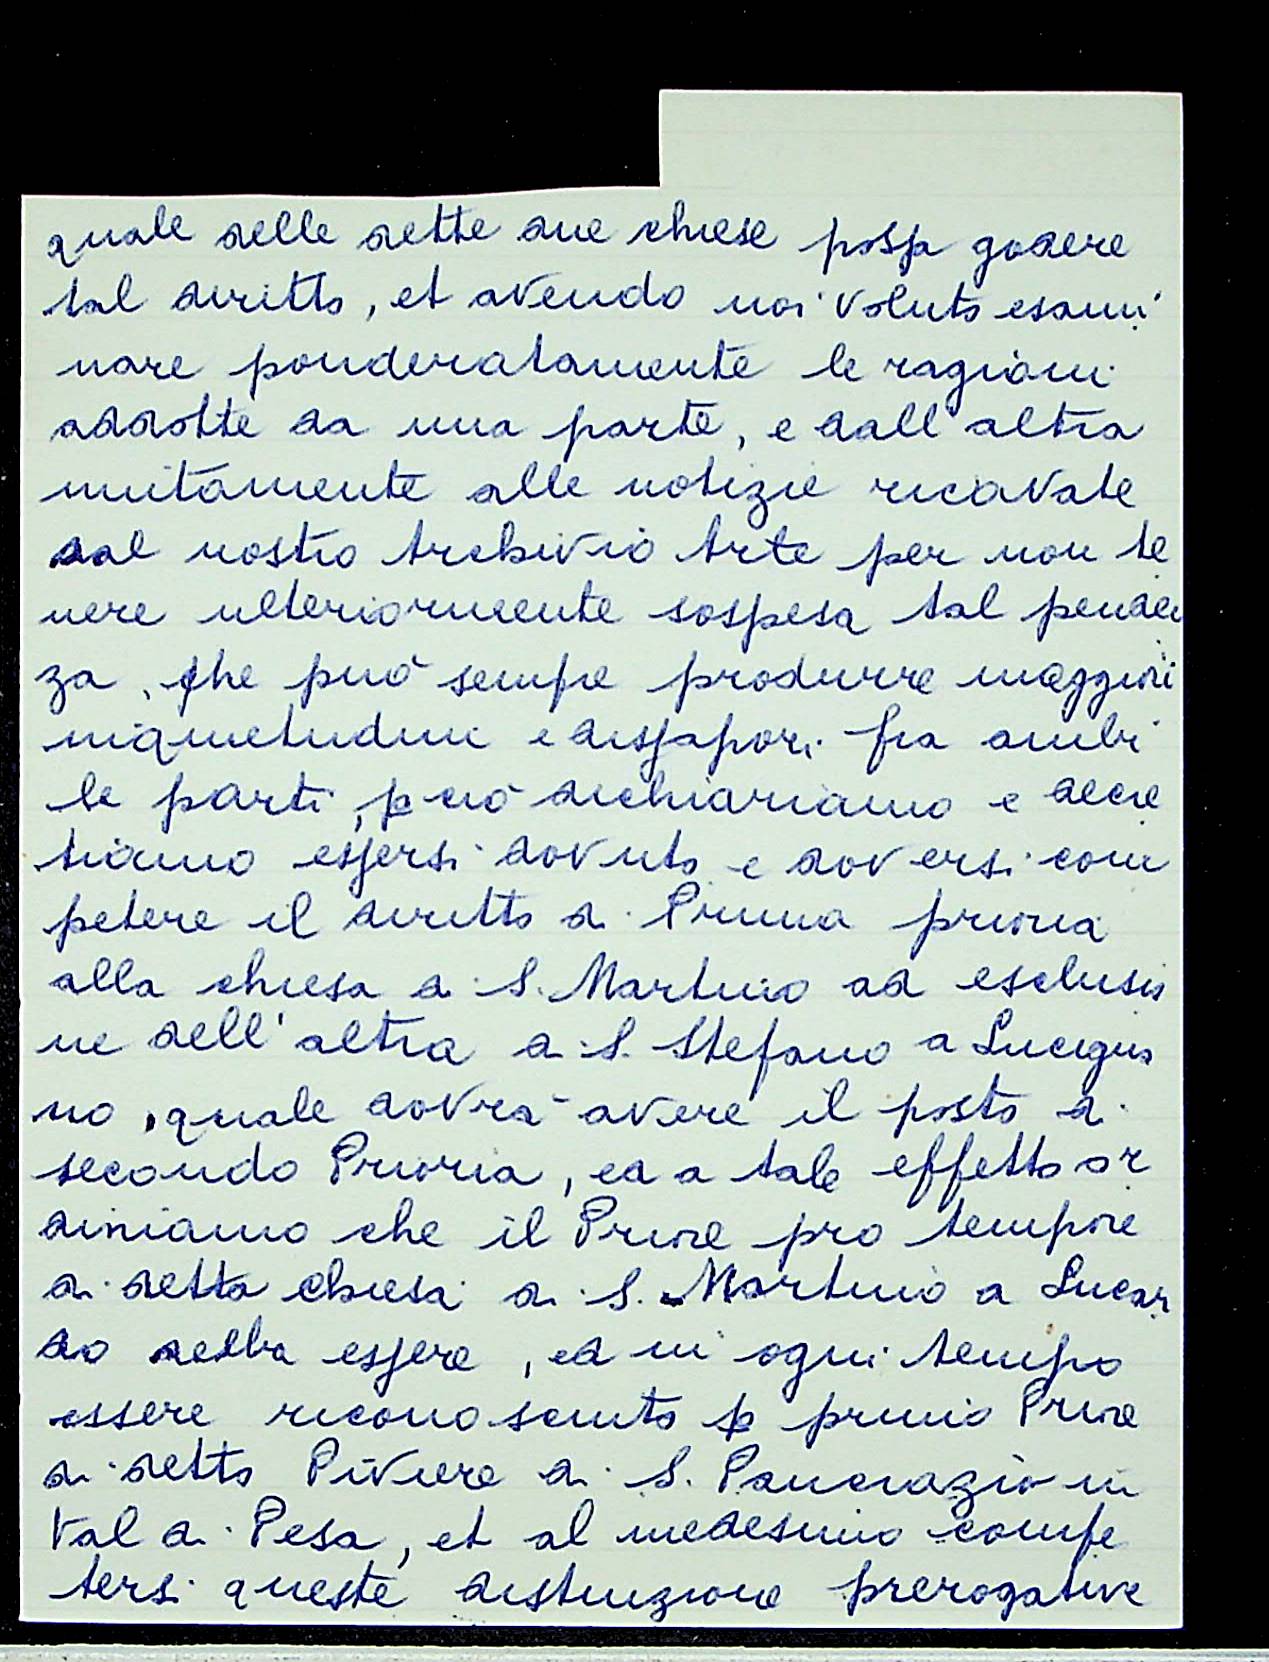 quale delle dette due chiese possa godere
tal diritto, et avendo noi voluto esami
nare ponderatamente le ragioni
addotte da una parte, e dall'altra
unitamente alle notizie ricavate
dal nostro Archivio Arte per non te
nere ulteriormente sospesa tal penden
za, che può sempre produrre maggiori
inquietudini e dissapori fra ambi
le parti, perciò dichiariamo e decre
tiamo essersi dovuto e doversi com
petere il diritto di Prima prioria
alla chiesa di S. Martino ad esclusio
ne dell'altra di S. Stefano a Lucigna
no, quale dovrà avere il posto di
secondo Prioria, ed a tale effetto or
diniamo che il Priore pro tempore
di detta chiesa di S. Martino a Lucar
do debba essere, ed in ogni tempo
essere riconosciuto p primo Priore
di detto Piviere di S. Pancrazio in
Val di Pesa, et al medesimo compe
tersi queste distinzione prerogative